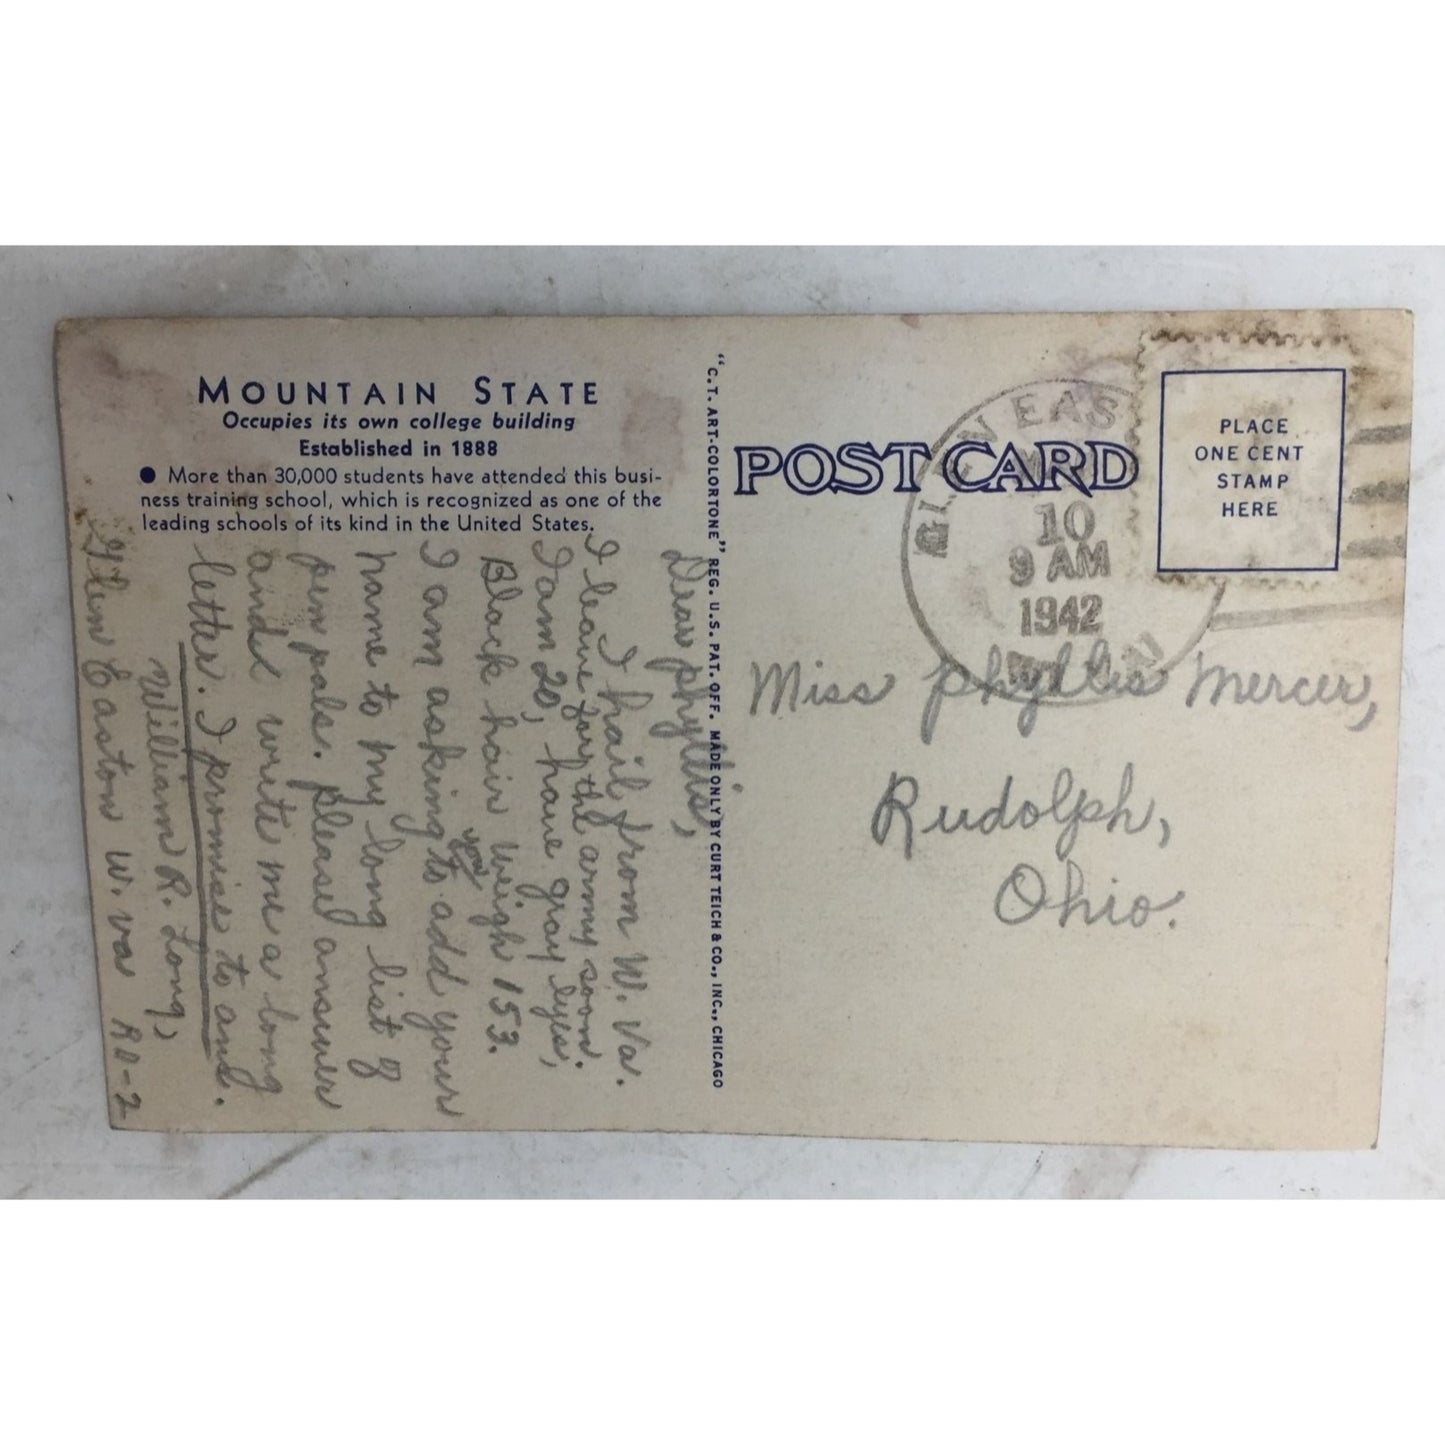 MOUNTAIN STATE
Occupies its own college building
Established in 1888
● More than 30,000 students have attended this busi-
ness training school, which is recognized as one of the
leading schools of its kind in the United States.
Dear phyllis,
I hail from W. Va.
I leave for the army soon.
I am 20, have gray eyes,
Black hair weigh 153.
I am asking you to add your
name to my long list of
pen pals. please answer
and write me a long
letter. I promise to ans.
William R. Long,
Glen Easton W. Va RD-2
"C.T. ART-COLORTONE" REG. U.S. PAT. OFF. MADE ONLY BY CURT TEICH & CO., INC., CHICAGO
POST CARD
EAS
10
9 AM
1942
PLACE
ONE CENT
STAMP
HERE
Miss phyllis Mercer,
Rudolph,
Ohio.